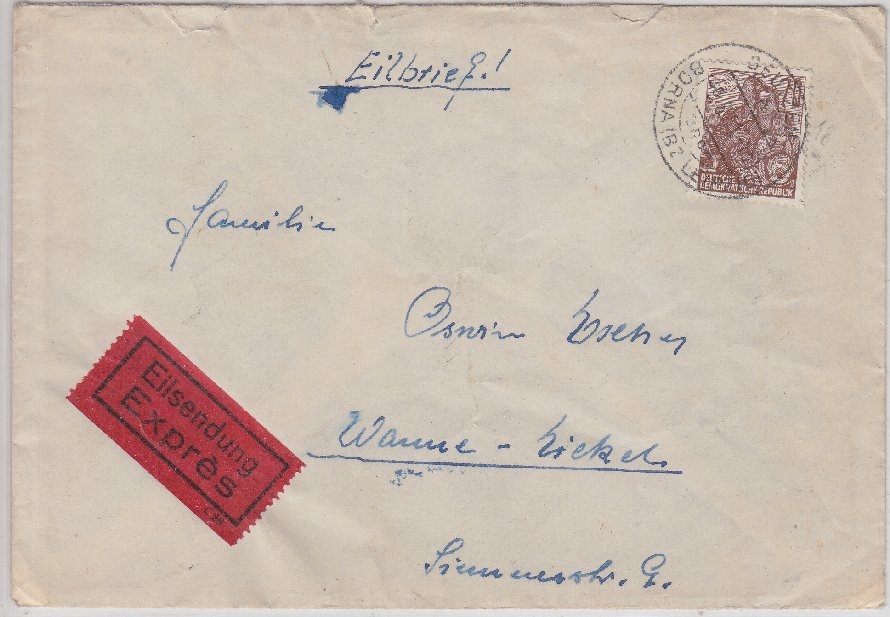 Eilbrief!
BORNA (BZ LE
DEUTSCHE
DEMOKRATISCHE REPUBLIK
Familie
Oswin Escher
Wanne-Eickel.
Eilsendung
Exprès